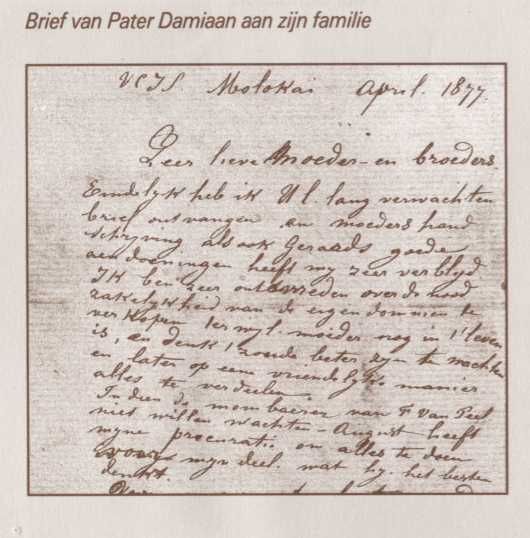 Brief van Pater Damiaan aan zijn familie
VCJS Molokai April. 1877.
Zeer lieve Moeder - en broeders.
Eindelyk heb ik Ul. lang verwachten
brief ontvangen en moeders hand
schryving als ook Gerards goede
aendoeningen heeft my zeer verblyd
Ik ben zeer ontevreden over de nood
zakelykheid van de eigendommen te
verkopen terwyl moeder nog in 't leven
is, en denk 't zoude beter zyn te wachten
en later op eem vriendelyke manier
alles te verdeelen.
Indien de mombaeren van F Van
niet willen wachten - August heeft
myne procuratie om alles te doen
voor myn deel. wat hy het besten
denkt.